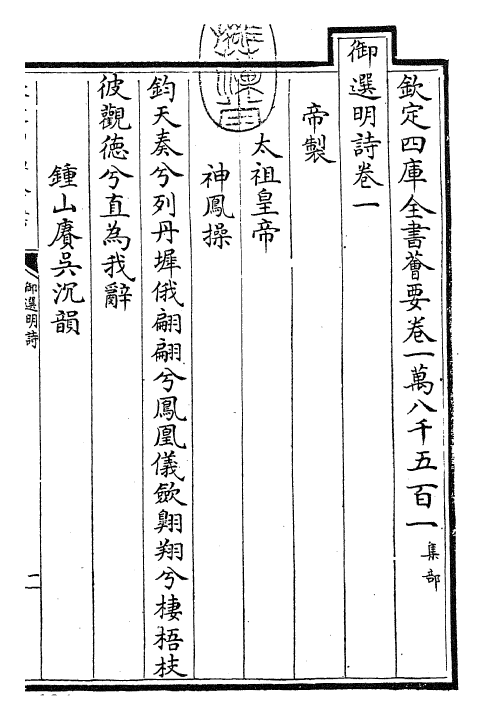 欽定四庫全書薈要卷一萬八千五百一 集部
御選明詩卷一
帝製
太祖皇帝
神鳳操
鈞天奏兮列丹墀俄翩翩兮鳳凰儀歘翺翔兮棲梧枝
彼觀德兮直為我辭
鍾山賡吳沉韻
御選明詩